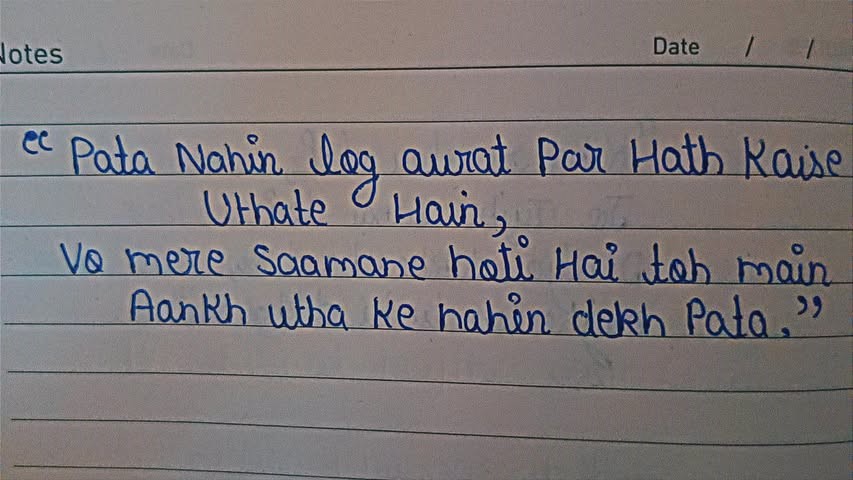 Notes
Date / /
“ Pata Nahin log aurat Par Hath Kaise
Uthate Hain,
Vo mere Saamane hoti Hai toh main
Aankh utha Ke nahin dekh Pata.”